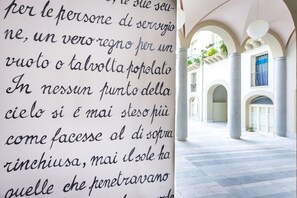 per le persone di servigio
ne, un vero regno per un
vuoto o talvolta popolato
In nessun punto della
cielo si è mai steso più
come facesse al di sopra
rinchiusa, mai il sole ha
quelle che penetravano